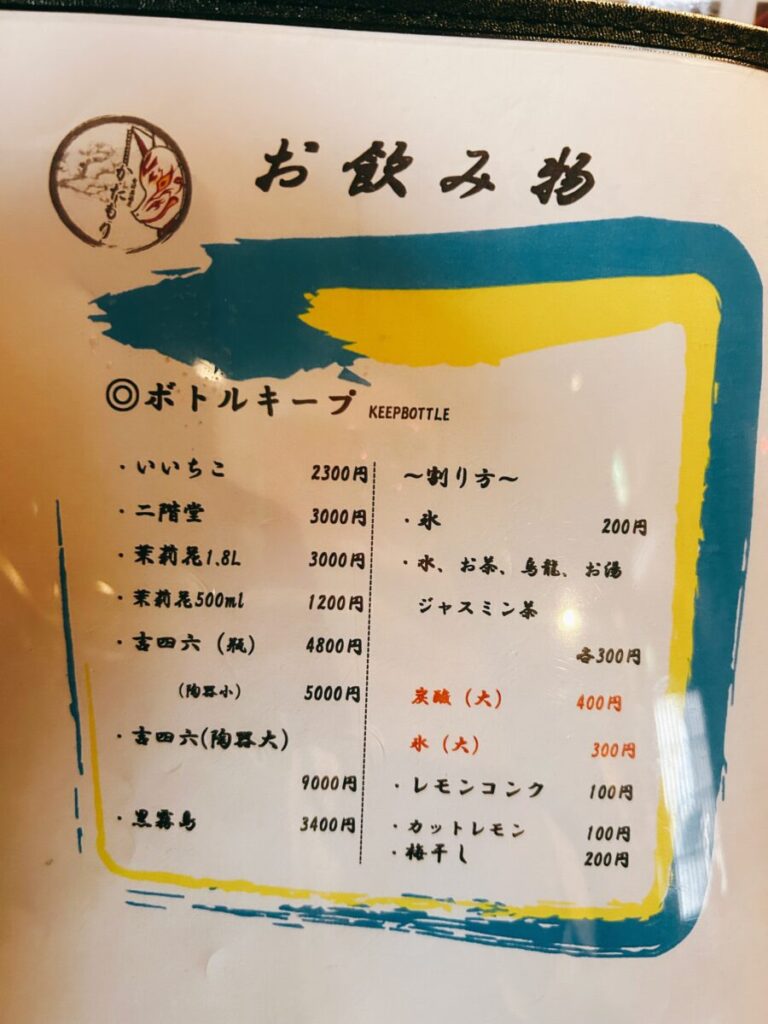 かたもり
お飲み物
◎ボトルキープ KEEPBOTTLE
・いいちこ 2300円
・二階堂 3000円
・茉莉花1.8L 3000円
・茉莉花500ml 1200円
・吉四六(瓶) 4800円
(陶器小) 5000円
・吉四六(陶器大)
9000円
・黒霧島 3400円
～割り方～
・氷 200円
・水、お茶、烏龍、お湯
ジャスミン茶
各300円
炭酸(大) 400円
氷(大) 300円
・レモンコンク 100円
・カットレモン 100円
・梅干し 200円